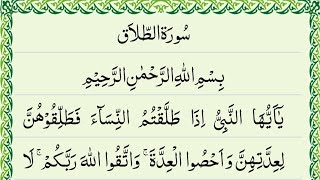 سُوۡرَةُ الطَّلَاق
بِسۡمِ اللهِ الرَّحۡمٰنِ الرَّحِيۡمِ
يٰۤاَيُّهَا النَّبِىُّ اِذَا طَلَّقۡتُمُ النِّسَآءَ فَطَلِّقُوۡهُنَّ
لِعِدَّتِهِنَّ وَاَحۡصُوا الۡعِدَّةَ‌ ۚ وَاتَّقُوا اللهَ رَبَّكُمۡ‌ ۚ لَا